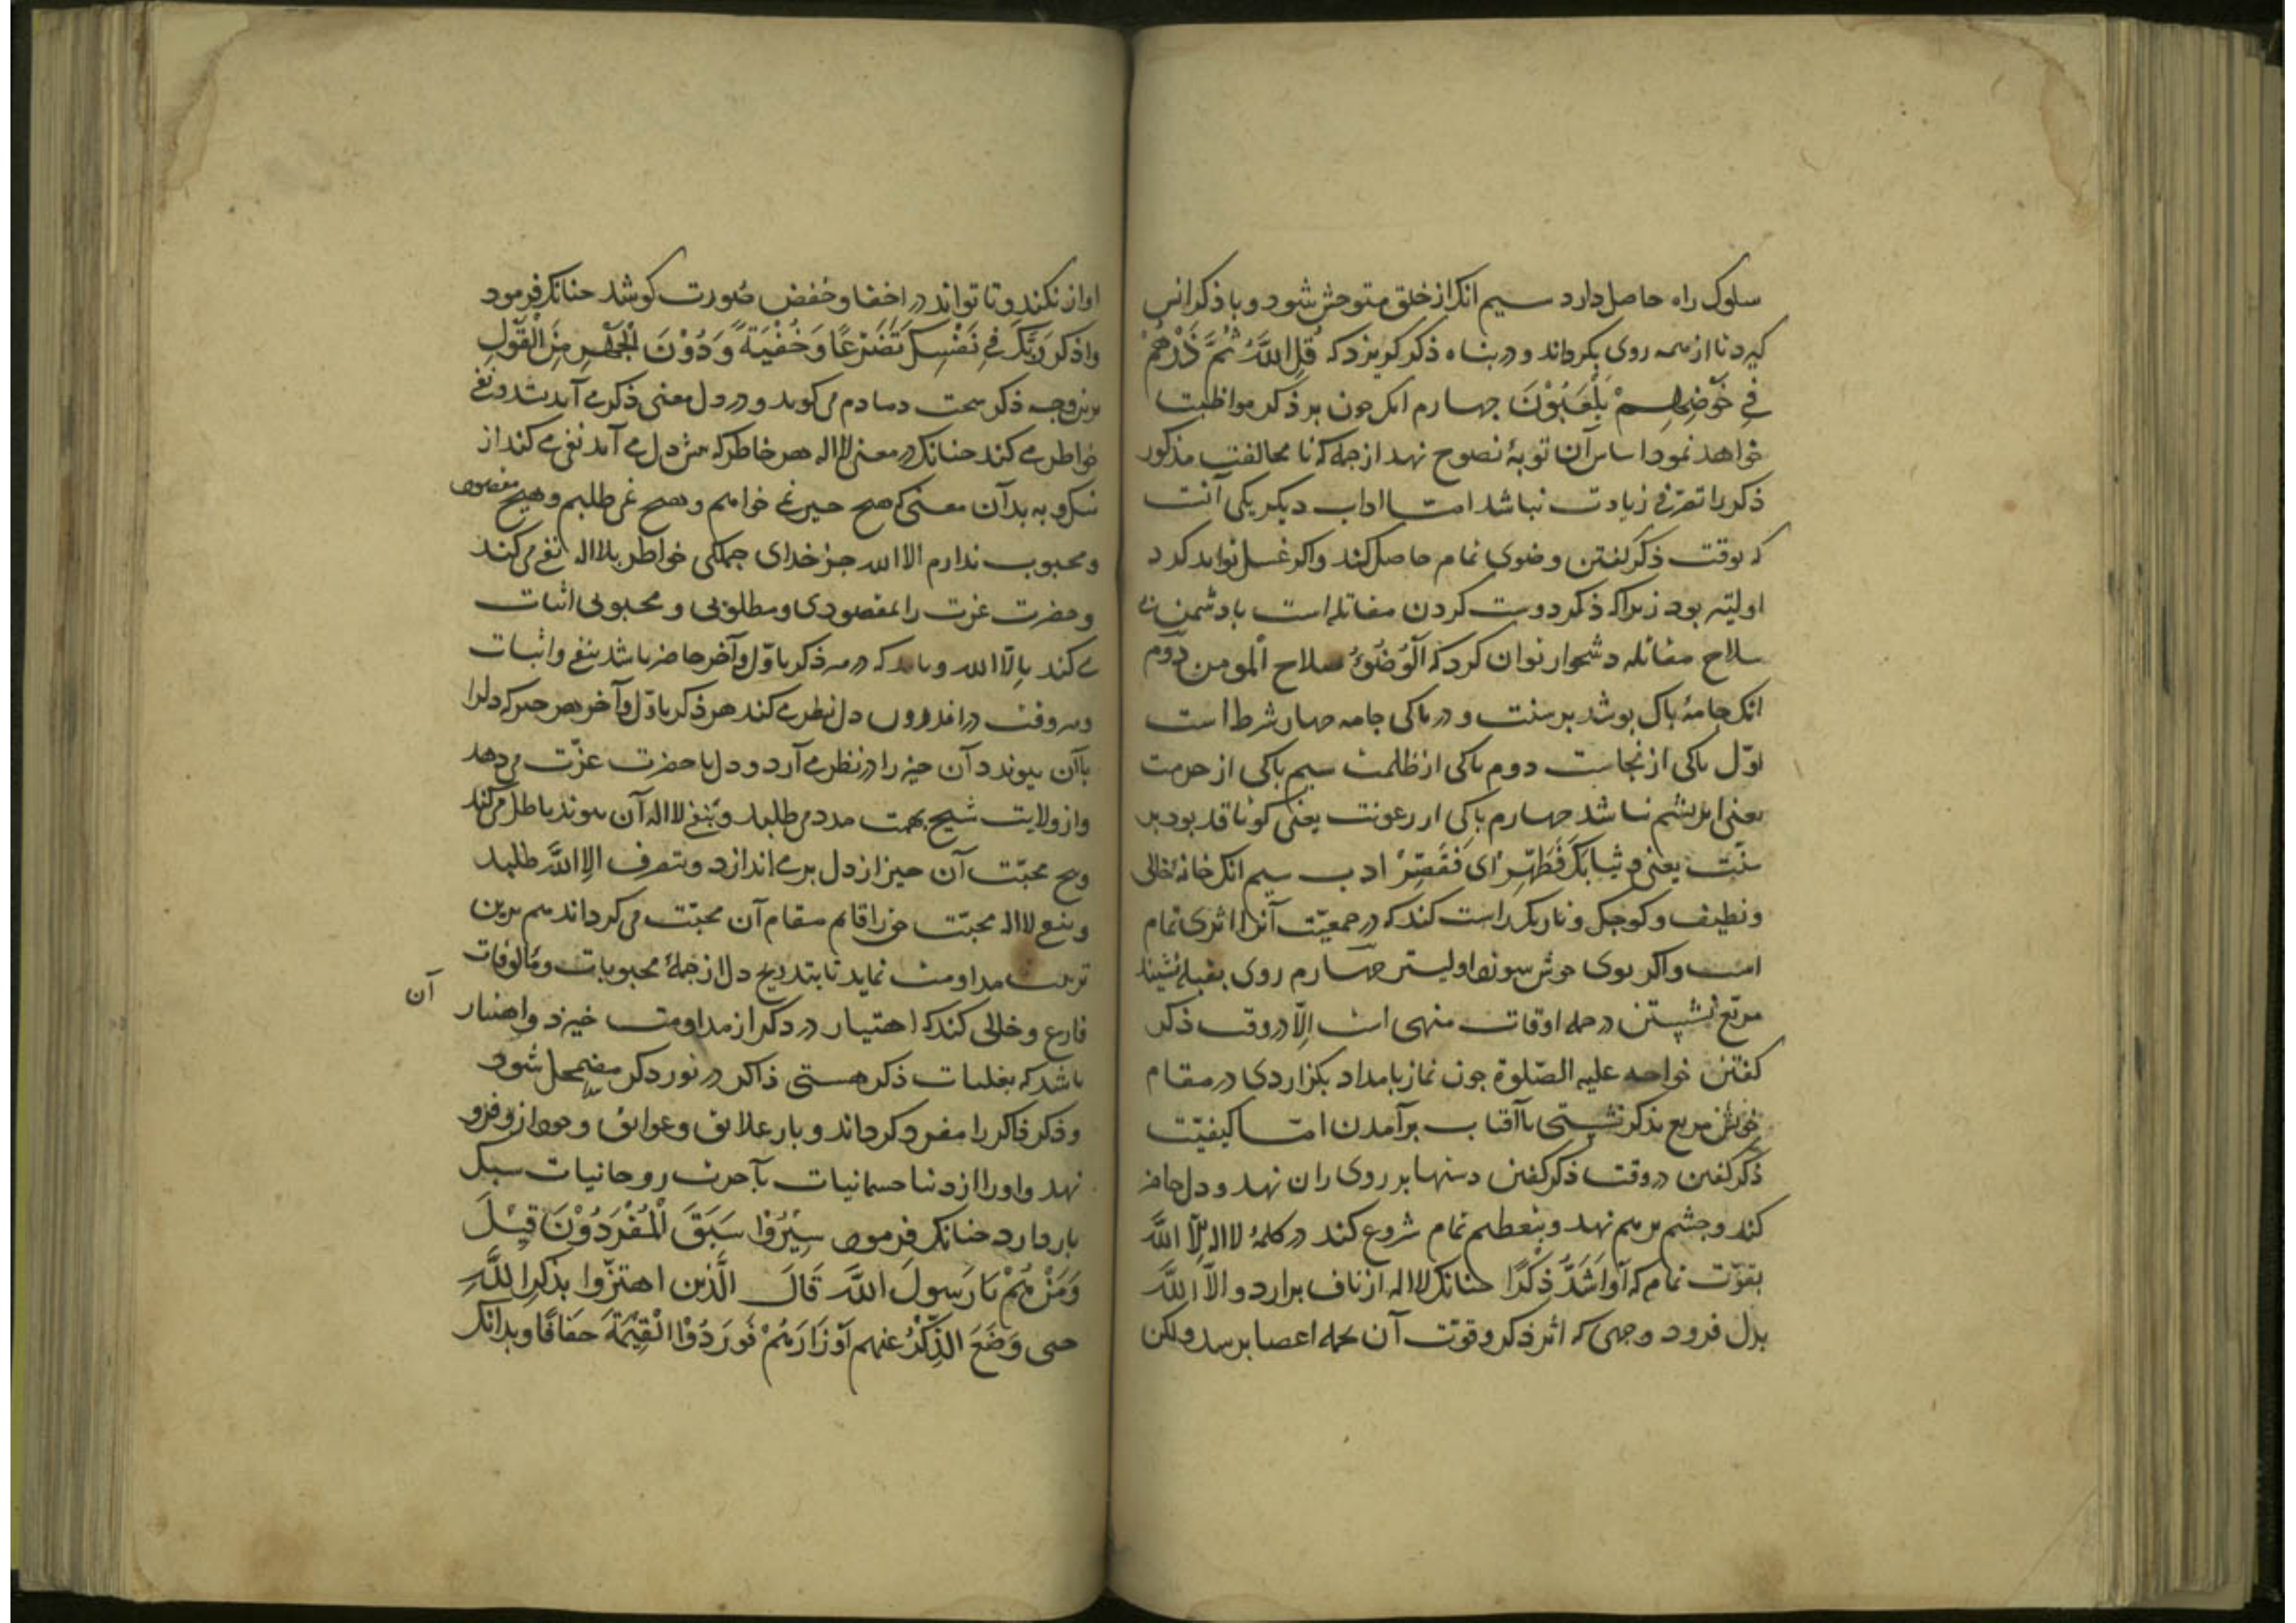 سلوک راه حاصل دارد سیم انک از خلق متوحش شود و با ذکر انس
کیرد تا از همه روی بکرداند و در بناه ذکر کریزد که قُلِ اللَّهُ ثُمَّ ذَرْهُمْ
فِي خَوْضِهِمْ يَلْعَبُوْنَ جهارم انک جون بر ذکر مواظبت
خواهد نمود اساس آن توبهٔ نصوح نهد از جمله کنا مخالفت مذکور
ذکر را تصرفی زیادت نباشد امّا اداب دیکر یکی آنست
که بوقت ذکر کفتن وضوی تمام حاصل کند واکر غسل تواند کرد
اولیتر بود زیرا که ذکر دوست کردن مقاتله است با دشمن بی
سلاح مقاتله دشخوار توان کرد که اَلْوُضُوْءُ سلاح الْمومن دوّم
انک جامهٔ باک بوشد بر سنت و در باکی جامه جهار شرط است
اوّل باکی از نجاست دوم باکی از ظلمت سیم باکی از حرمت
یعنی ابریشم نباشد جهارم باکی از رعونت یعنی کوتا قد بود بر
سنّت یعنی و ثیابک فَطَهِّرْ ای فَقَصِّرْ ادب سیم انک خانهٔ خالی
ونظیف و کوجک و تاریک راست کند که در جمعیّت آنرا اثری تمام
است واکر بوی خوش سوزد اولیتر جهارم روی بقبله نشیند
مربّع نشستن در جمله اوقات منهی است اِلّا در وقت ذکر
کفتن خواجه علیه الصّلوة جون نماز بامداد بکزاردی در مقام
خویش مربع بذکر نشستی تا آفتاب برآمدن امّا کیفیّت
ذکر کفتن در وقت ذکر کفتن دستها بر روی ران نهد و دل حاضر
کند وجشم برهم نهد و بتعظیم تمام شروع کند در کلمهٔ لااله اِلَّا اللَّه
بقوّت تمام که اَوْ اَشَدَّ ذِکْرًا حنانک لااله از ناف برارد و الاّ اللَّه
بدل فرود وجهی که اثر ذکر و قوّت آن بجمله اعضا برسد ولکن
اواز نکند و تا تواند در اخفا وخفض صُورت کوشد حنانک فرمود
واذکر رَبَّکَ فِي نَفْسِکَ تَضَرُّعًا وَ خُفْيَةً وَ دُوْنَ الْجَهْرِ مِنَ الْقَوْلِ
برین وجه ذکر سخت دمادم می کوید و در دل معنی ذکر می آندیشد و نفی
خواطر می کند حنانک در معنی لااله هر خاطر که بیش دل می آمد نفی می کند از
نیک و بد بدآن معنی که هیج حیز نمی خواهم وهیج نمی طلبم و هیج مقصود
ومحبوب ندارم الا الله جز خدای جملکی خواطر بلااله نفی می کند
وحضرت عزت را بمقصودی ومطلوبی و محبوبی اثبات
می کند بِالّا الله و باید که در هر ذکر باوّل وآخر حاضر باشد بنفی واثبات
وهر وقت در اندرون دل نظر می کند هر ذکر باوّل وآخر هر حیز که دلرا
باآن بیوند د آن حیز را در نظر می آرد و دل با حضرت عزّت می دهد
واز ولایت شیخ بهمت مدد می طلبد و بنفی لااله آن بیوند باطل می کند
وبیخ محبّت آن حیز از دل بر می اندازد وبتصرف اِلا اللَّه طلبد
وبنفی لااله محبّت حق را قایم مقام آن محبّت می کرداند هم برین
ترتیب مداومت نماید تا بتدریج دل از جملهٔ محبوبات ومألوفات
آن
فارغ وخالی کند که اهتیار در ذکر از مداومت خیزد واهتیار
باشد که بغلبات ذکر هستی ذاکر در نور ذکر مضمحل شود
وذکر ذاکر را مفرد کرداند و بار علایق وعوایق و جواز و فرو
نهد واورا از دنیا جسمانیات بآخرت روحانیات سبک
بار دارد حنانک فرمود سِيْرُوا سَبَقَ الْمُفْرَدُوْنَ قِيْلَ
وَمَنْ هُمْ يَا رَسولَ اللَّه قَالَ الَّذين اهتزّوا بذکر اللَّهِ
حتی وَضَعَ الذِّکْرُ عنهم اَوْزَارَهُمْ فَوَرَدُوْا الْقِيْمَةَ خفافًا وبدانک